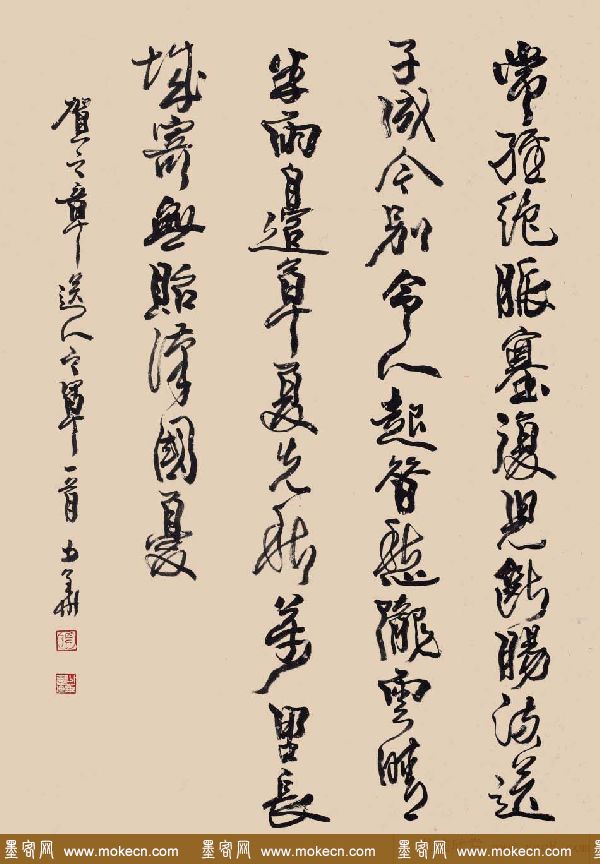 常經絕脈塞復見斷腸流送
子成今別令人起昔愁隴雲晴
半雨邊草夏先秋萬里長
城寄無貽漢國憂
賀之章送人之軍一首
墨客网 www.mokecn.com 墨客网 www.mokecn.com 墨客网 www.mokecn.com